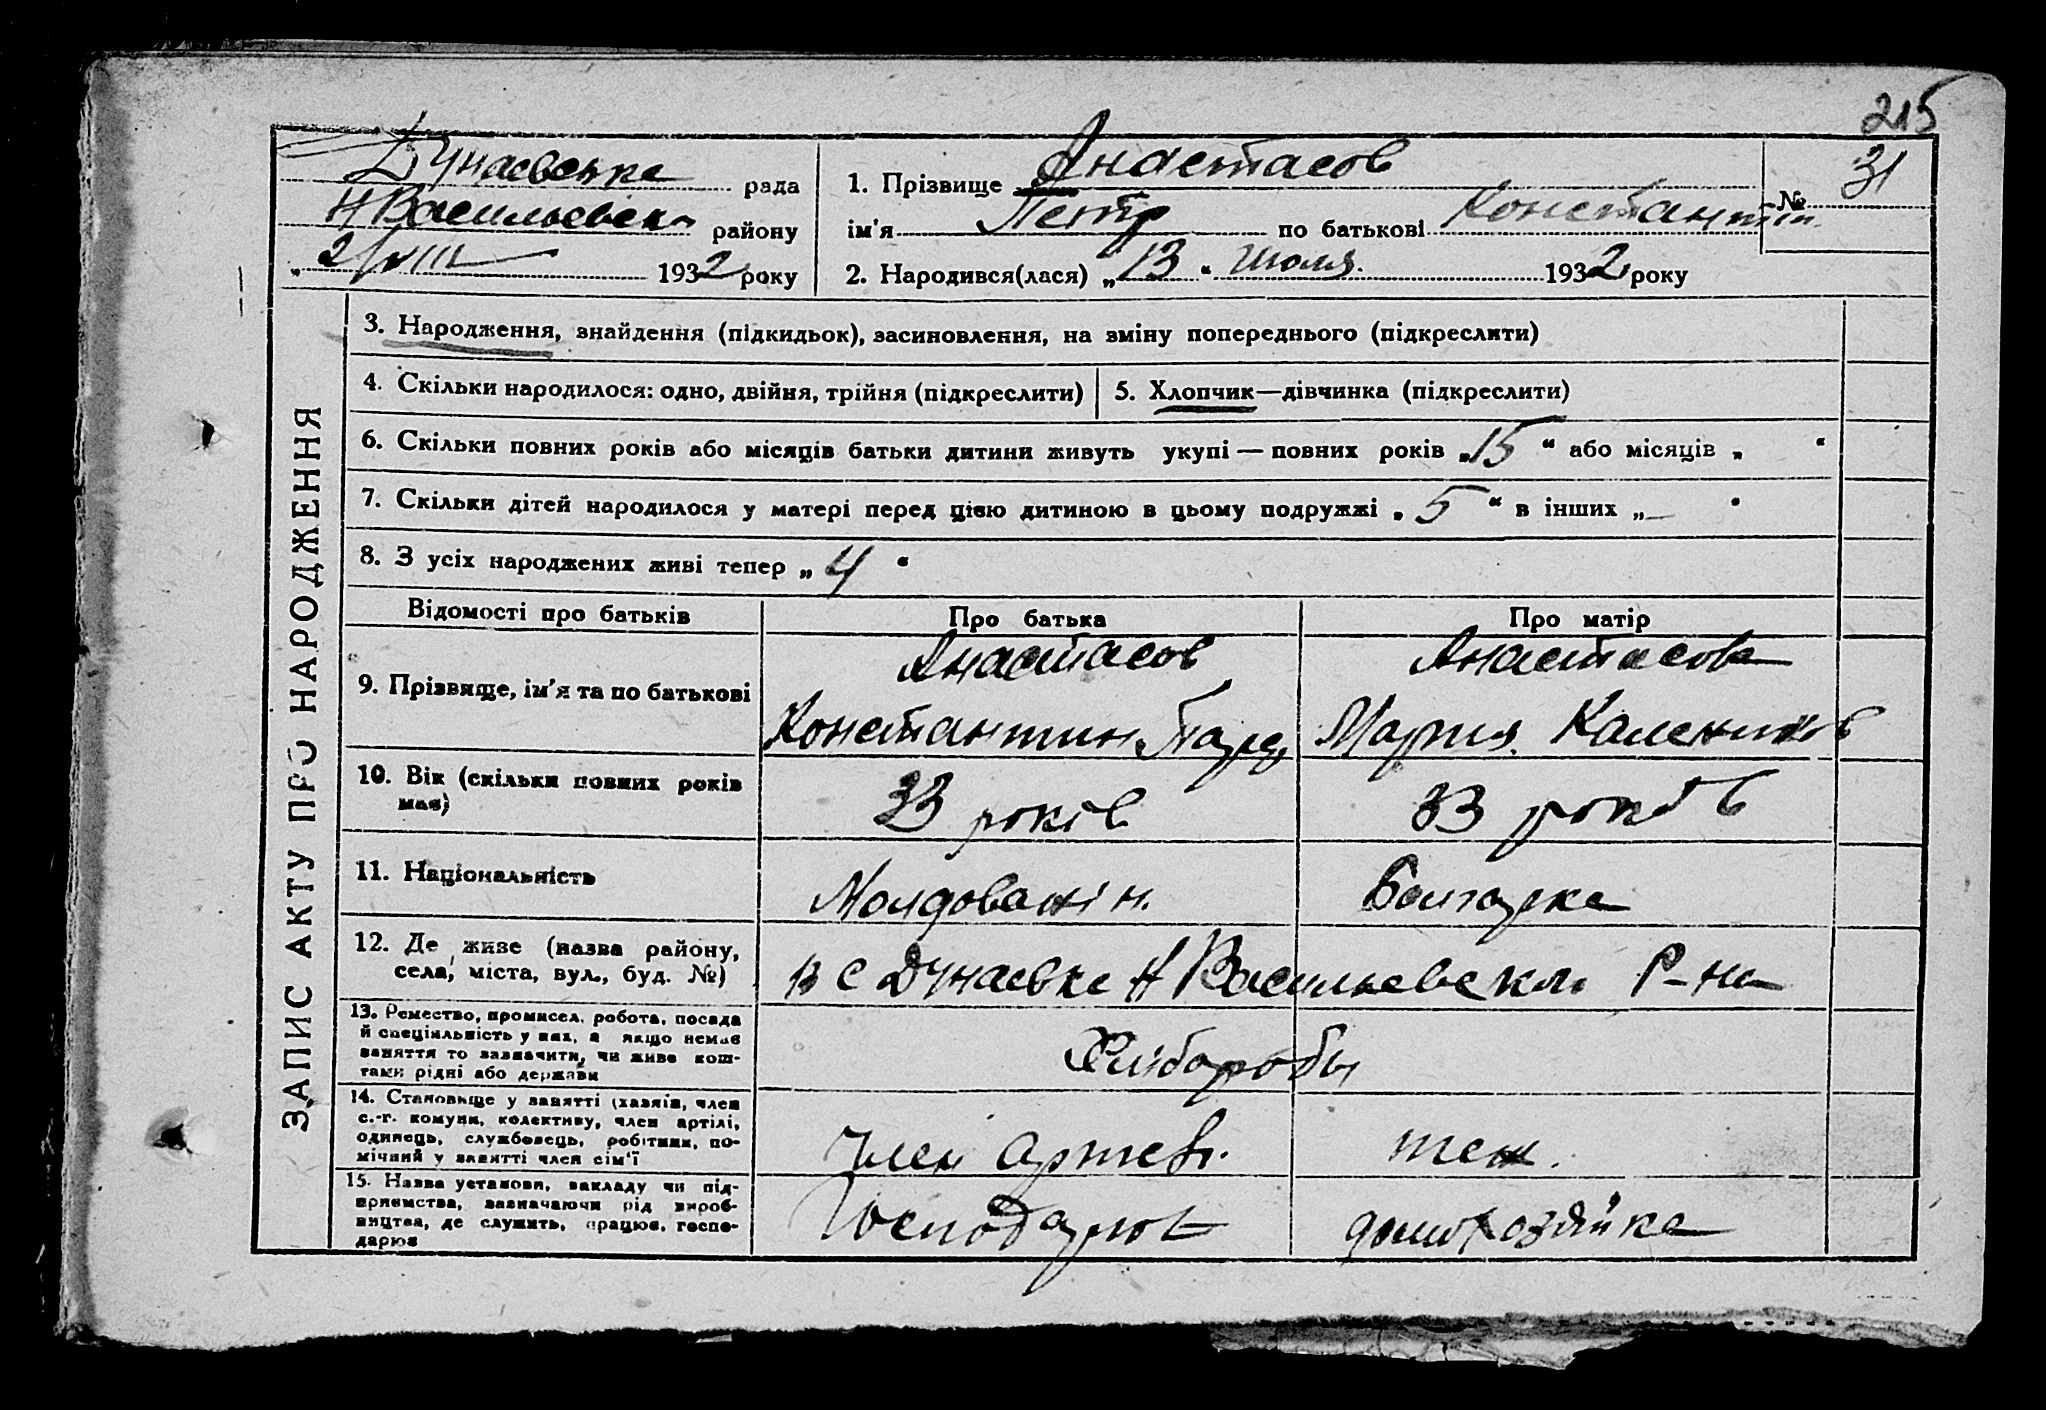 215
Дунаевська рада
Н Васильевськ району
„ 2/VIII 1932 року
1. Прізвище Анастасов
ім'я Петр по батькові Константин.
№ 31
2. Народився(лася) „13“ Июля. 1932 року
ЗАПИС АКТУ ПРО НАРОДЖЕННЯ
3. Народження, знайдення (підкидьок), засиновлення, на зміну попереднього (підкреслити)
4. Скільки народилося: одно, двійня, трійня (підкреслити)
5. Хлопчик—дівчинка (підкреслити)
6. Скільки повних років або місяців батьки дитини живуть укупі — повних років „15“ або місяців „ “
7. Скільки дітей народилося у матері перед цією дитиною в цьому подружжі „5“ в інших „—“
8. З усіх народжених живі тепер „4“
Відомості про батьків
Про батька
Про матір
9. Прізвище, ім'я та по батькові
Анастасов
Константин
Анастасова
Мария
10. Вік (скільки повних років
має)
33 років
33 років
11. Національність
Молдованін.
Болгарка
12. Де живе (назва району,
села, міста, вул., буд. №)
в с Дунаевке Н Васильевськом Р-на
13. Ремество, промисел, робота, посада
й спеціяльність у них, а якщо немає
заняття то зазначити, чи живе кош-
тами рідні або держави
Хлібороби
14. Становище у занятті (хазяїн, член
с.-г. комуни, колективу, член артілі,
одинець, службовець, робітник, по-
мічний у занятті член сім'ї
член артелі.
теж.
15. Назва установи, закладу чи під-
приємства, зазначаючи рід вироб-
ництва, де служить, працює, госпо-
дарює
Господарює
домохозяйка